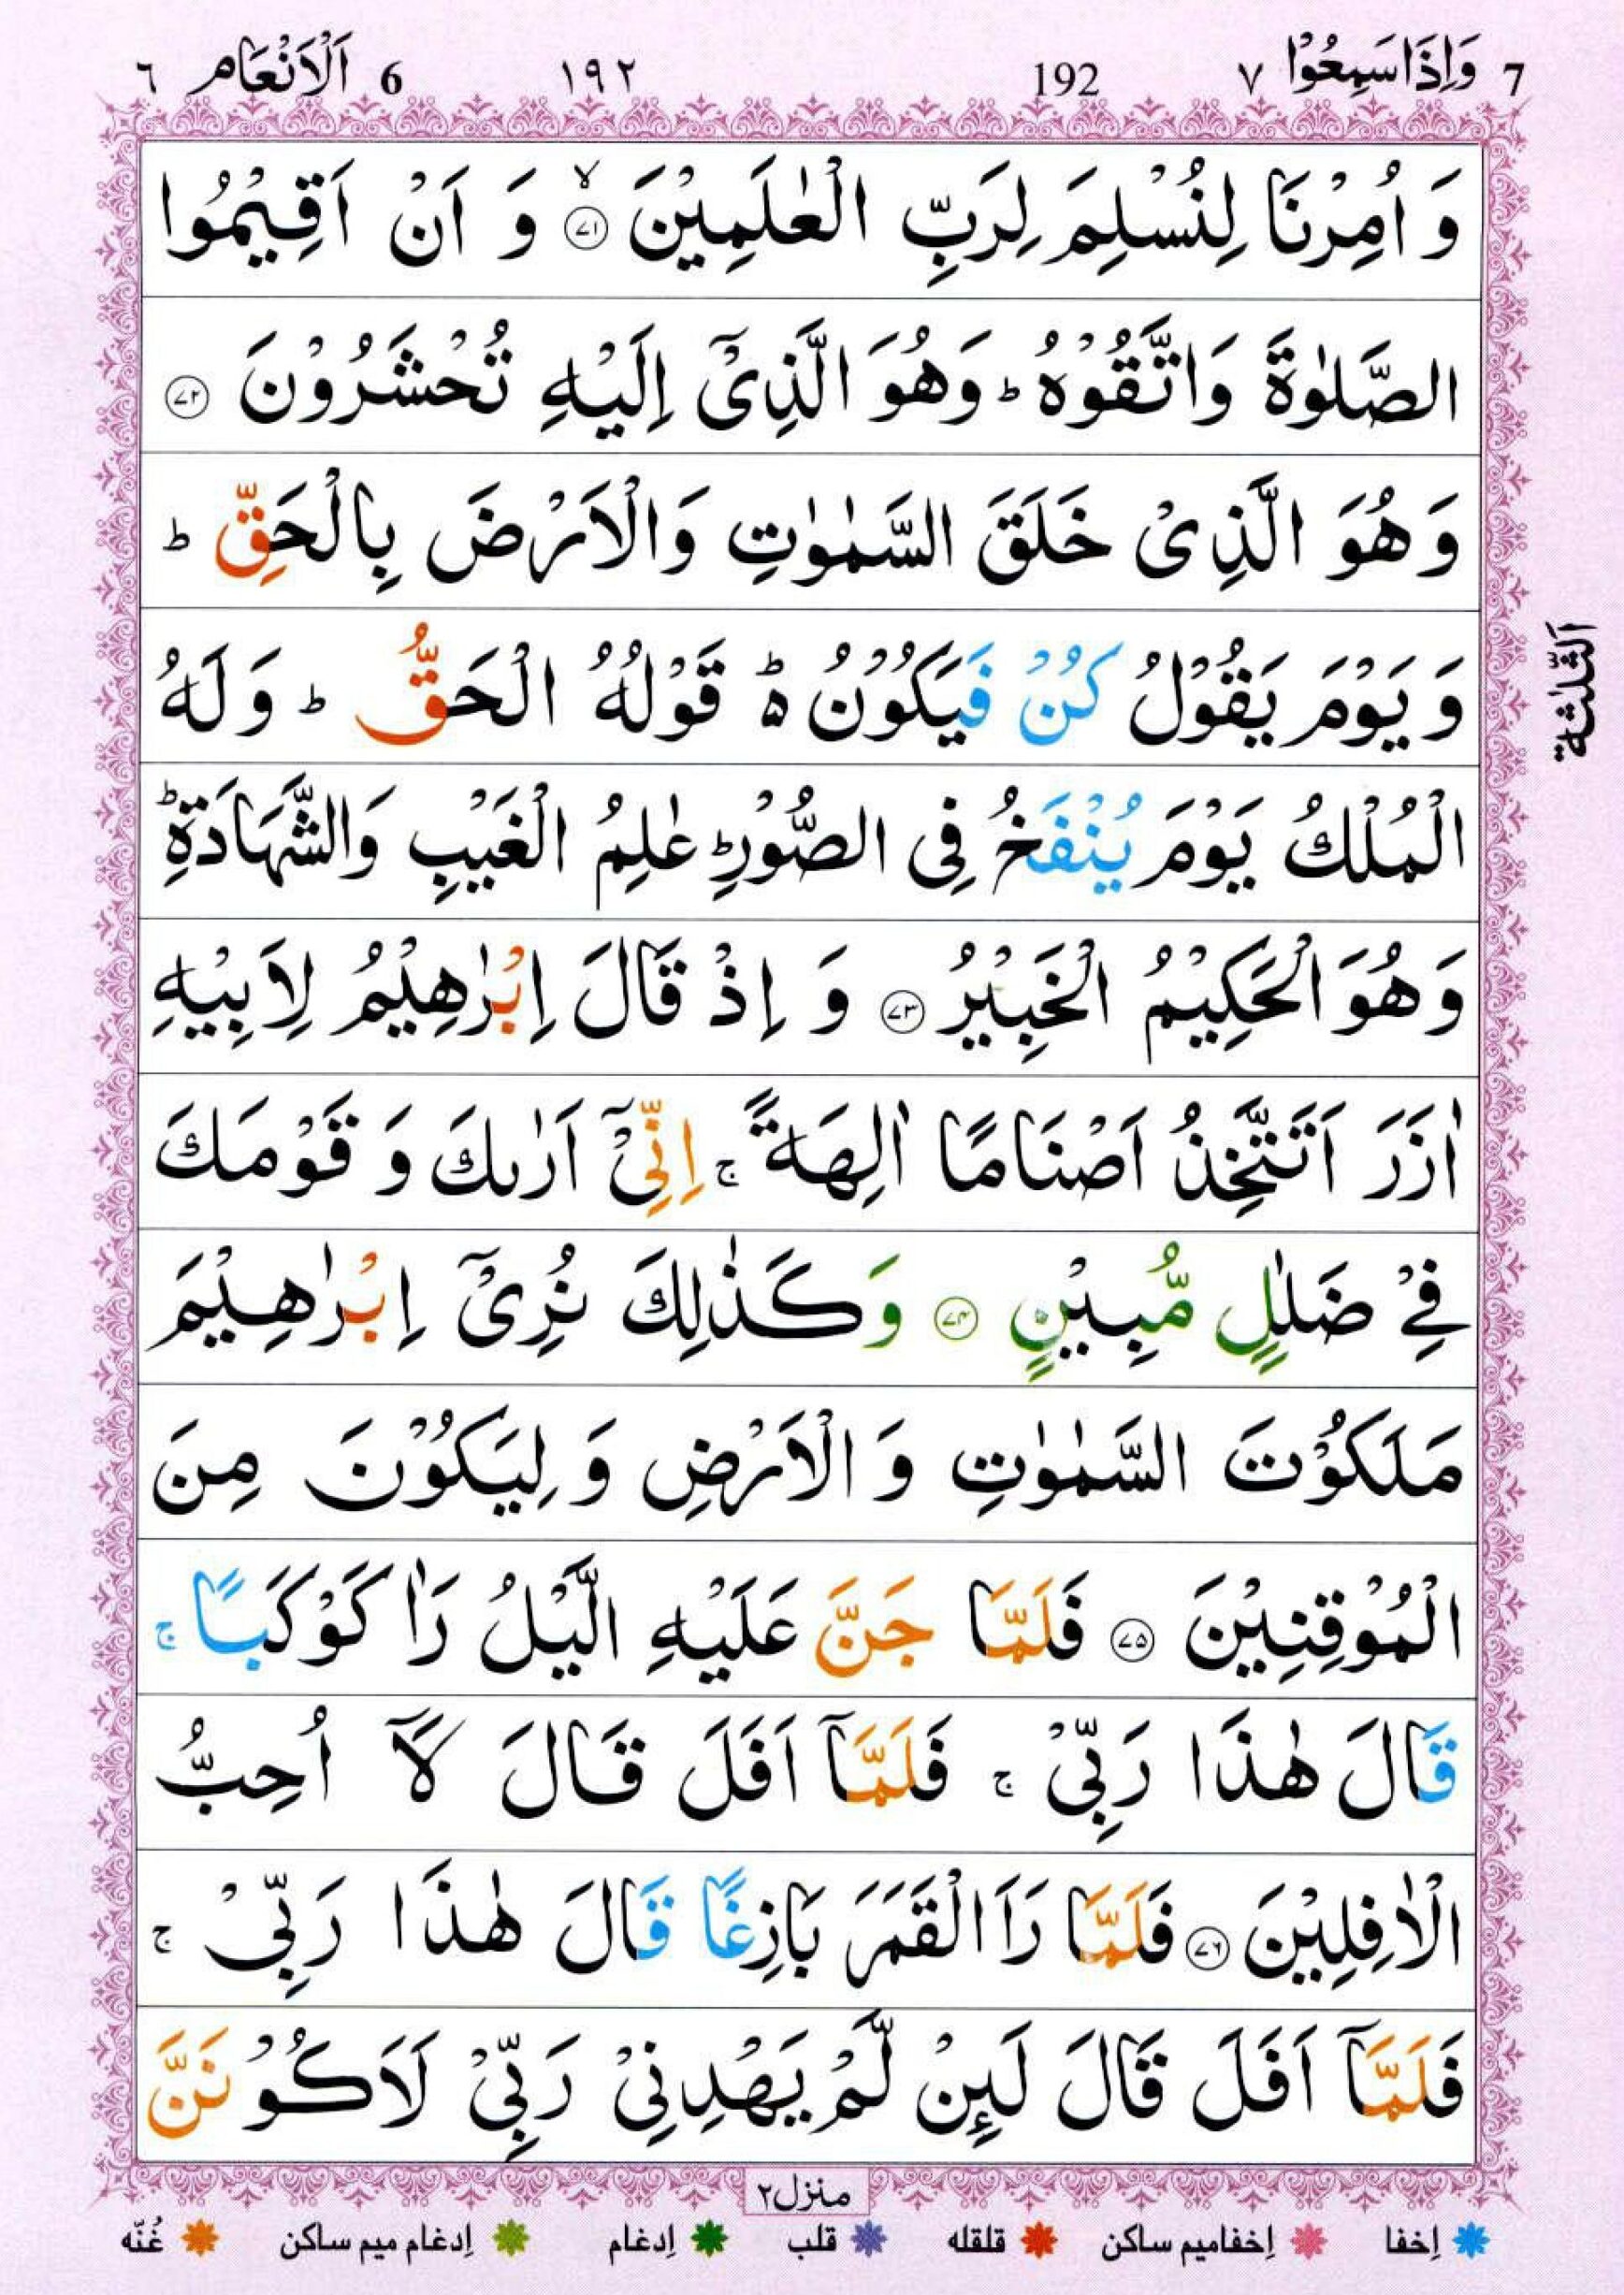 7 وَاِذَاسَمِعُوْا ٧ 192 ١٩٢ 6 اَلْاَنْعَام ٦
وَ اُمِرْنَا لِنُسْلِمَ لِرَبِّ الْعٰلَمِيْنَ ۙ ﴿۷۱﴾ وَ اَنْ اَقِيْمُوا
الصَّلٰوةَ وَاتَّقُوْهُ ؕ وَهُوَ الَّذِيْۤ اِلَيْهِ تُحْشَرُوْنَ ﴿۷۲﴾
وَ هُوَ الَّذِيْ خَلَقَ السَّمٰوٰتِ وَالْاَرْضَ بِالْحَقِّ ؕ
وَ يَوْمَ يَقُوْلُ كُنْ فَيَكُوْنُ ؕ۬ قَوْلُهُ الْحَقُّ ؕ وَ لَهُ
الثلثة
الْمُلْكُ يَوْمَ يُنْفَخُ فِي الصُّوْرِ ؕ عٰلِمُ الْغَيْبِ وَالشَّهَادَةِ ؕ
وَ هُوَ الْحَكِيْمُ الْخَبِيْرُ ﴿۷۳﴾ وَ اِذْ قَالَ اِبْرٰهِيْمُ لِاَبِيْهِ
اٰزَرَ اَتَتَّخِذُ اَصْنَامًا اٰلِهَةً ۚ اِنِّيْۤ اَرٰىكَ وَ قَوْمَكَ
فِيْ ضَلٰلٍ مُّبِيْنٍ ﴿۷۴﴾ وَ كَذٰلِكَ نُرِيْۤ اِبْرٰهِيْمَ
مَلَكُوْتَ السَّمٰوٰتِ وَ الْاَرْضِ وَ لِيَكُوْنَ مِنَ
الْمُوْقِنِيْنَ ﴿۷۵﴾ فَلَمَّا جَنَّ عَلَيْهِ الَّيْلُ رَاٰ كَوْكَبًا ۚ
قَالَ هٰذَا رَبِّيْ ۚ فَلَمَّاۤ اَفَلَ قَالَ لَاۤ اُحِبُّ
الْاٰفِلِيْنَ ﴿۷۶﴾ فَلَمَّا رَاَ الْقَمَرَ بَازِغًا قَالَ هٰذَا رَبِّيْ ۚ
فَلَمَّاۤ اَفَلَ قَالَ لَىِٕنْ لَّمْ يَهْدِنِيْ رَبِّيْ لَاَكُوْنَنَّ
منزل۲
إخفا إخفامیم ساکن قلقله قلب إدغام إدغام میم ساکن غُنّه